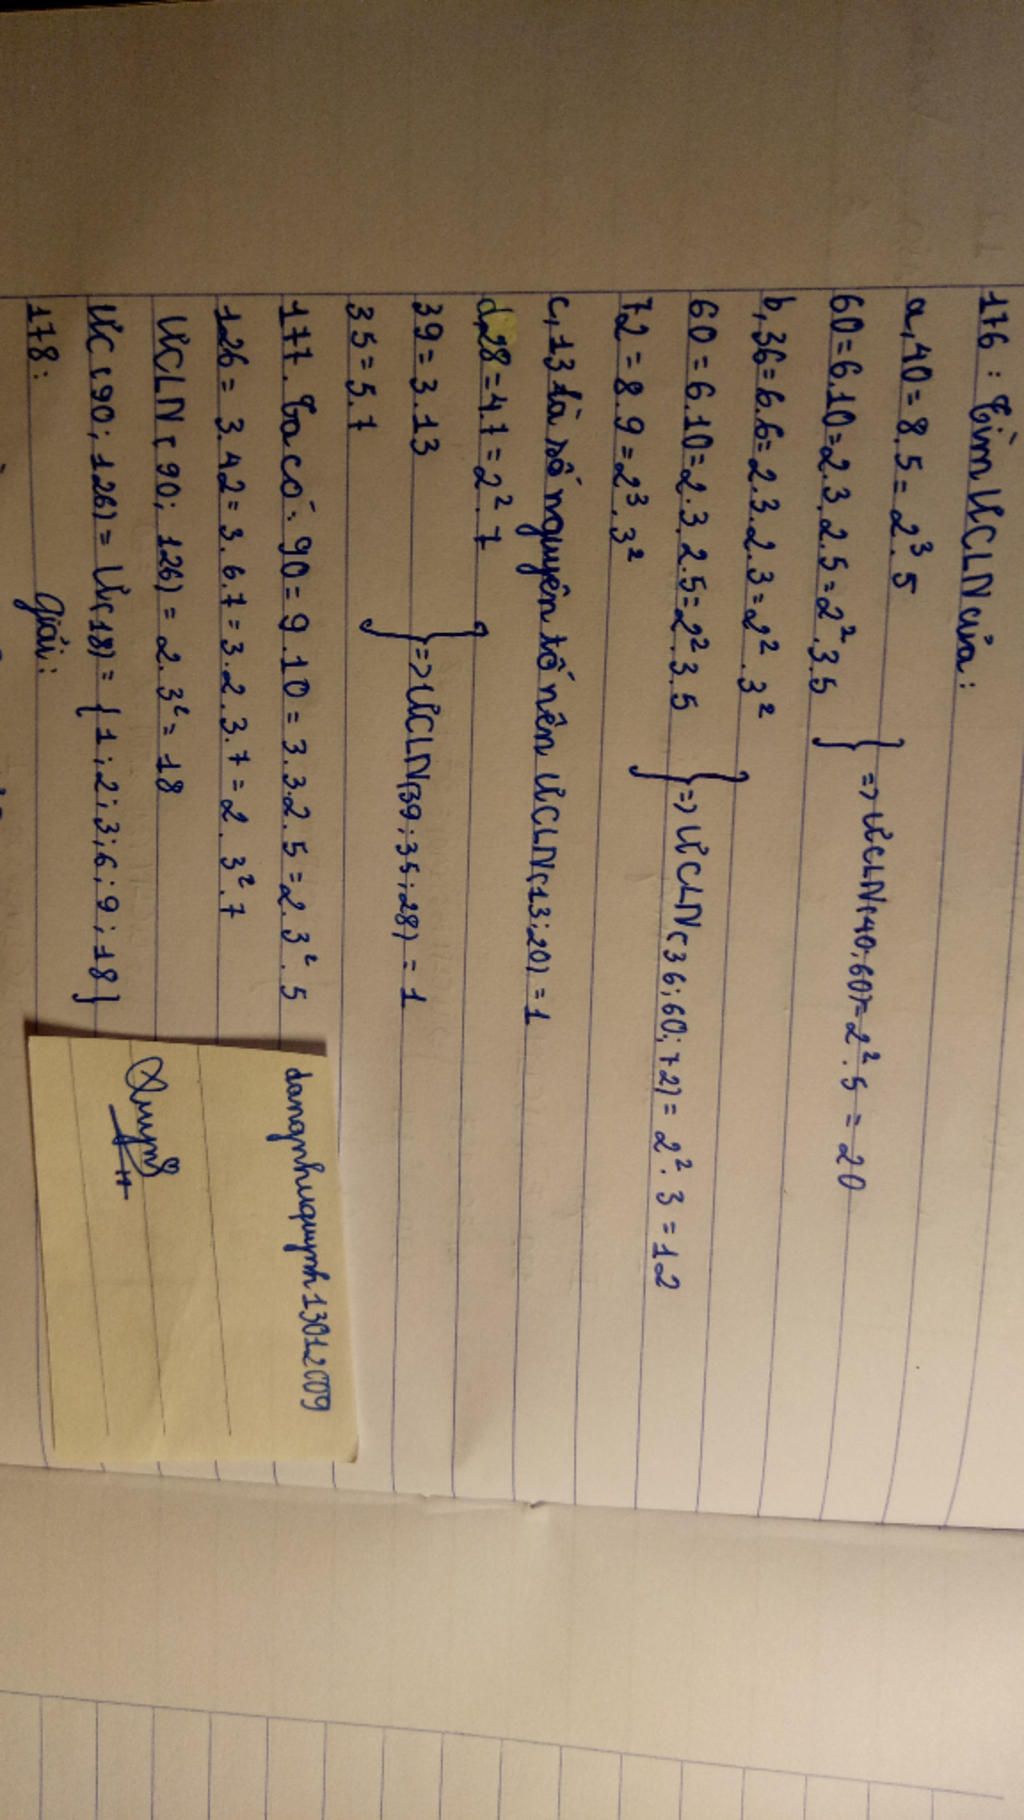 176: Tìm ƯCLN của:
a, 40 = 8.5 = 2³.5
60 = 6.10 = 2.3.2.5 = 2².3.5
=> ƯCLN(40;60) = 2².5 = 20
b, 36 = 6.6 = 2.3.2.3 = 2².3²
60 = 6.10 = 2.3.2.5 = 2².3.5
72 = 8.9 = 2³.3²
=> ƯCLN(36;60;72) = 2².3 = 12
c, 13 là số nguyên tố nên ƯCLN(13;20) = 1
d, 28 = 4.7 = 2².7
39 = 3.13
35 = 5.7
=> ƯCLN(39;35;28) = 1
177. Ta có: 90 = 9.10 = 3.3.2.5 = 2.3².5
126 = 3.42 = 3.6.7 = 3.2.3.7 = 2.3².7
ƯCLN(90;126) = 2.3² = 18
ƯC(90;126) = Ư(18) = {1;2;3;6;9;18}
178: giải:
dangnhuquynh13012009